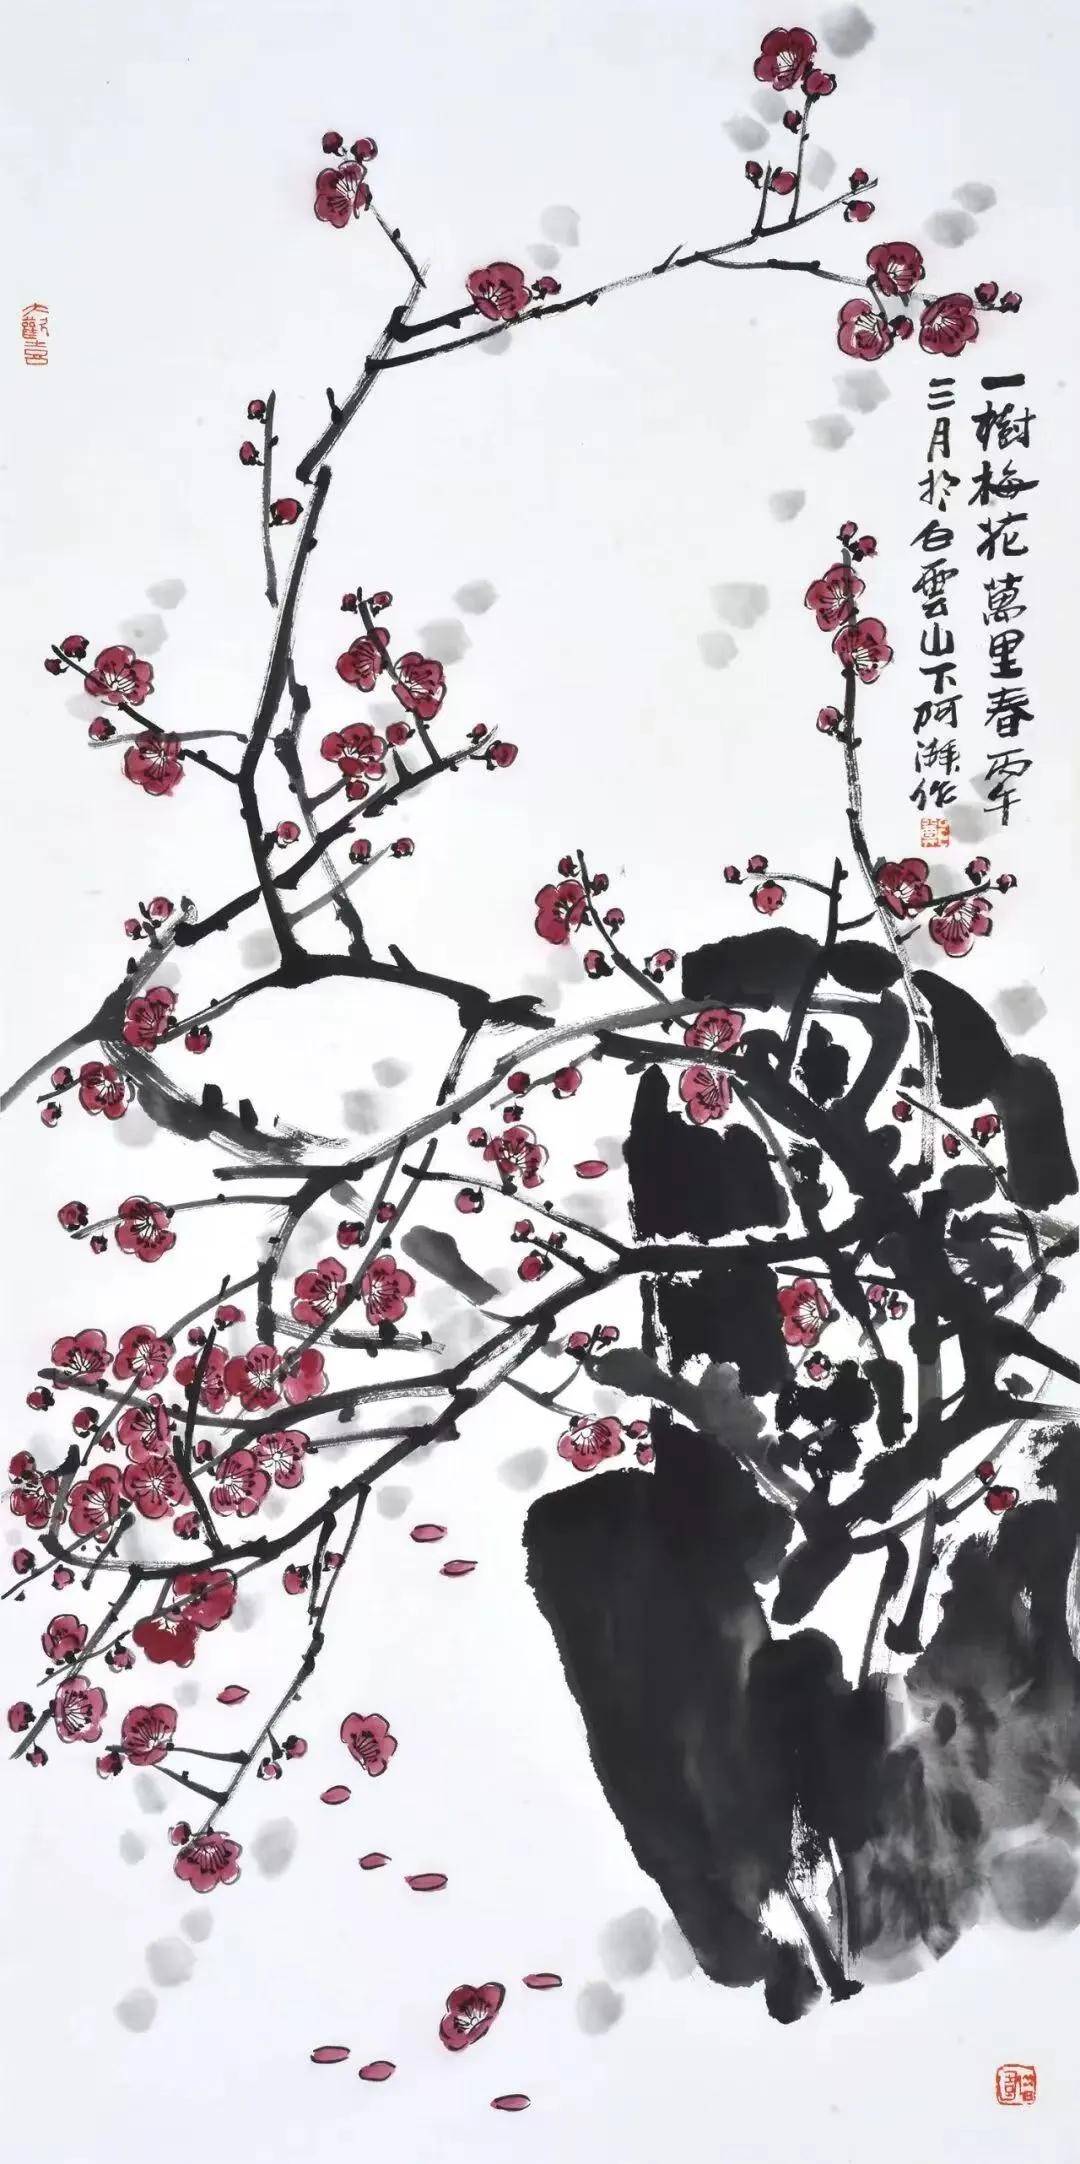 一樹梅花萬里春丙午
三月於白雲山下阿濂作